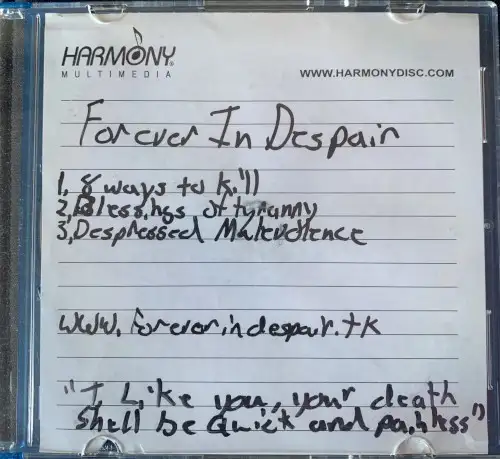 HARMONY®
MULTIMEDIA
WWW.HARMONYDISC.COM
Forever In Despair
1, 8 ways to kill
2, Blessings of tyranny
3, Despressed Malevolence
www.foreverindespair.tk
"I Like you, your death
shall be quick and painless"